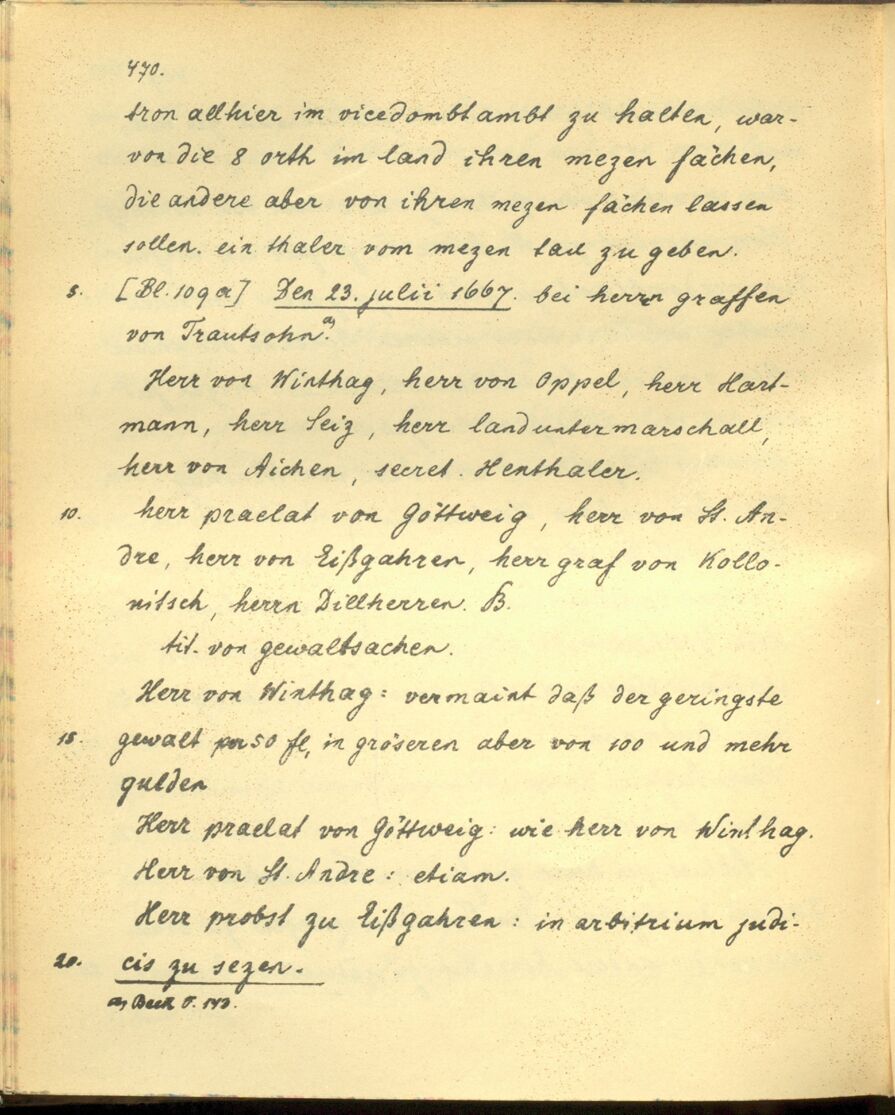 470.
tron allhier im vicedombtambt zu halten, war-
von die 8 orth im land ihren mezen fächen,
die andere aber von ihren mezen fächen lassen
sollen. ein thaler vom mezen tax zu geben.
5. [Bl. 109a] Den 23. julii 1667. bei herrn graffen
von Trautsohn a).
Herr von Winthag, herr von Oppel, herr Hart-
mann, herr Seiz, herr landuntermarschall,
herr von Aichen, secret. Henthaler.
10. herr praelat von Göttweig, herr von St. An-
dre, herr von Eißgahren, herr graf von Kollo-
nitsch, herrn Dillherren. B.
tit. von gewaltsachen.
Herr von Winthag: vermaint daß der geringste
15. gewalt per 50 fl, in gröseren aber von 100 und mehr
gulden
Herr praelat von Göttweig: wie herr von Winthag.
Herr von St. Andre: etiam.
Herr probst zu Eißgahren: in arbitrium judi-
20. cis zu sezen.
a) Beck S. 143.